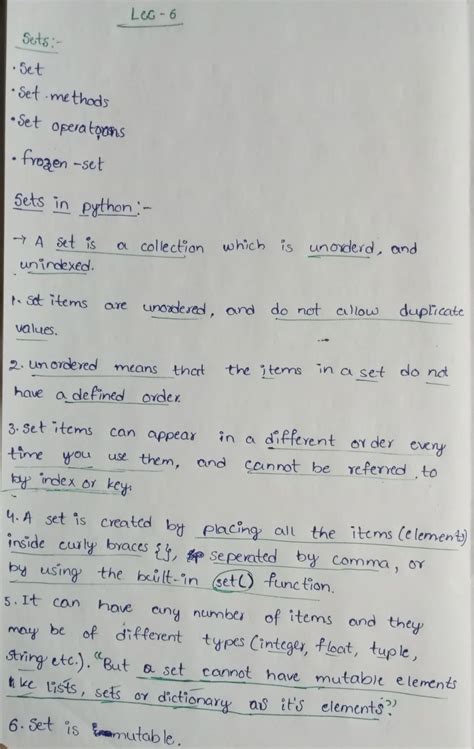 Lec - 6
Sets:-
• Set
• Set methods
• Set operations
• frozen -set
Sets in python:-
→ A set is a collection which is unorderd, and
unindexed.
1. set items are unordered, and do not allow duplicate
values.
2. unordered means that the items in a set do not
have a defined order.
3. set items can appear in a different order every
time you use them, and cannot be referred to
by index or key.
4. A set is created by placing all the items (elements)
inside curly braces {}, seperated by comma, or
by using the built-in set() function.
5. It can have any number of items and they
may be of different types (integer, float, tuple,
string etc.). "But a set cannot have mutable elements
like lists, sets or dictionary as it's elements"
6. Set is mutable.